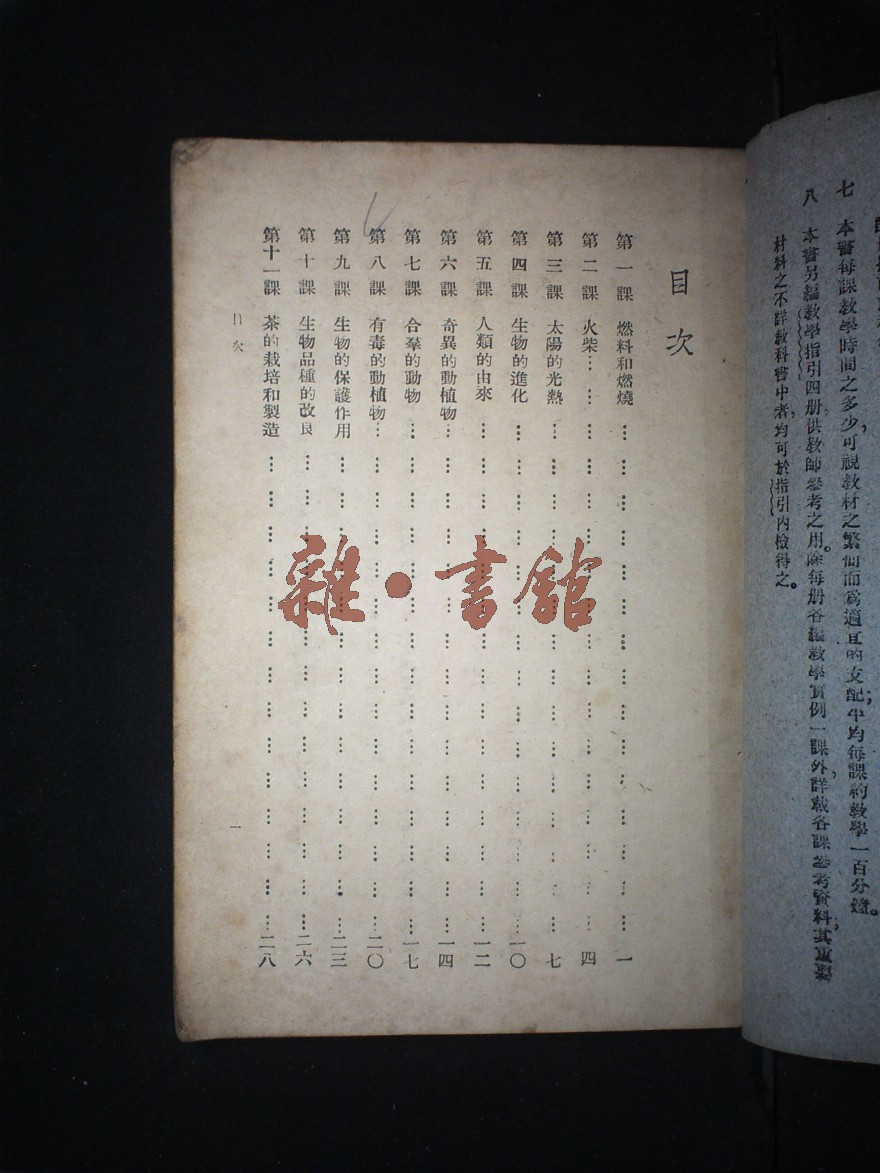 七 本書每課教學時間之多少,可視教材之繁簡而爲適宜的支配;平均每課約教學一百分鐘。
八 本書另編教學指引四册,供教師參考之用。除每册各編教學實例一課外,詳載各課參考資料,其重要
材料之不詳教科書中者,均可於指引內檢得之。
目次
第一課 燃料和燃燒……一
第二課 火柴……四
第三課 太陽的光熱……七
第四課 生物的進化……一〇
第五課 人類的由來……一二
第六課 奇異的動植物……一四
第七課 合羣的動物……一七
第八課 有毒的動植物……二〇
第九課 生物的保護作用……二三
第十課 生物品種的改良……二六
第十一課 茶的栽培和製造……二八
目次
一
雜·書館